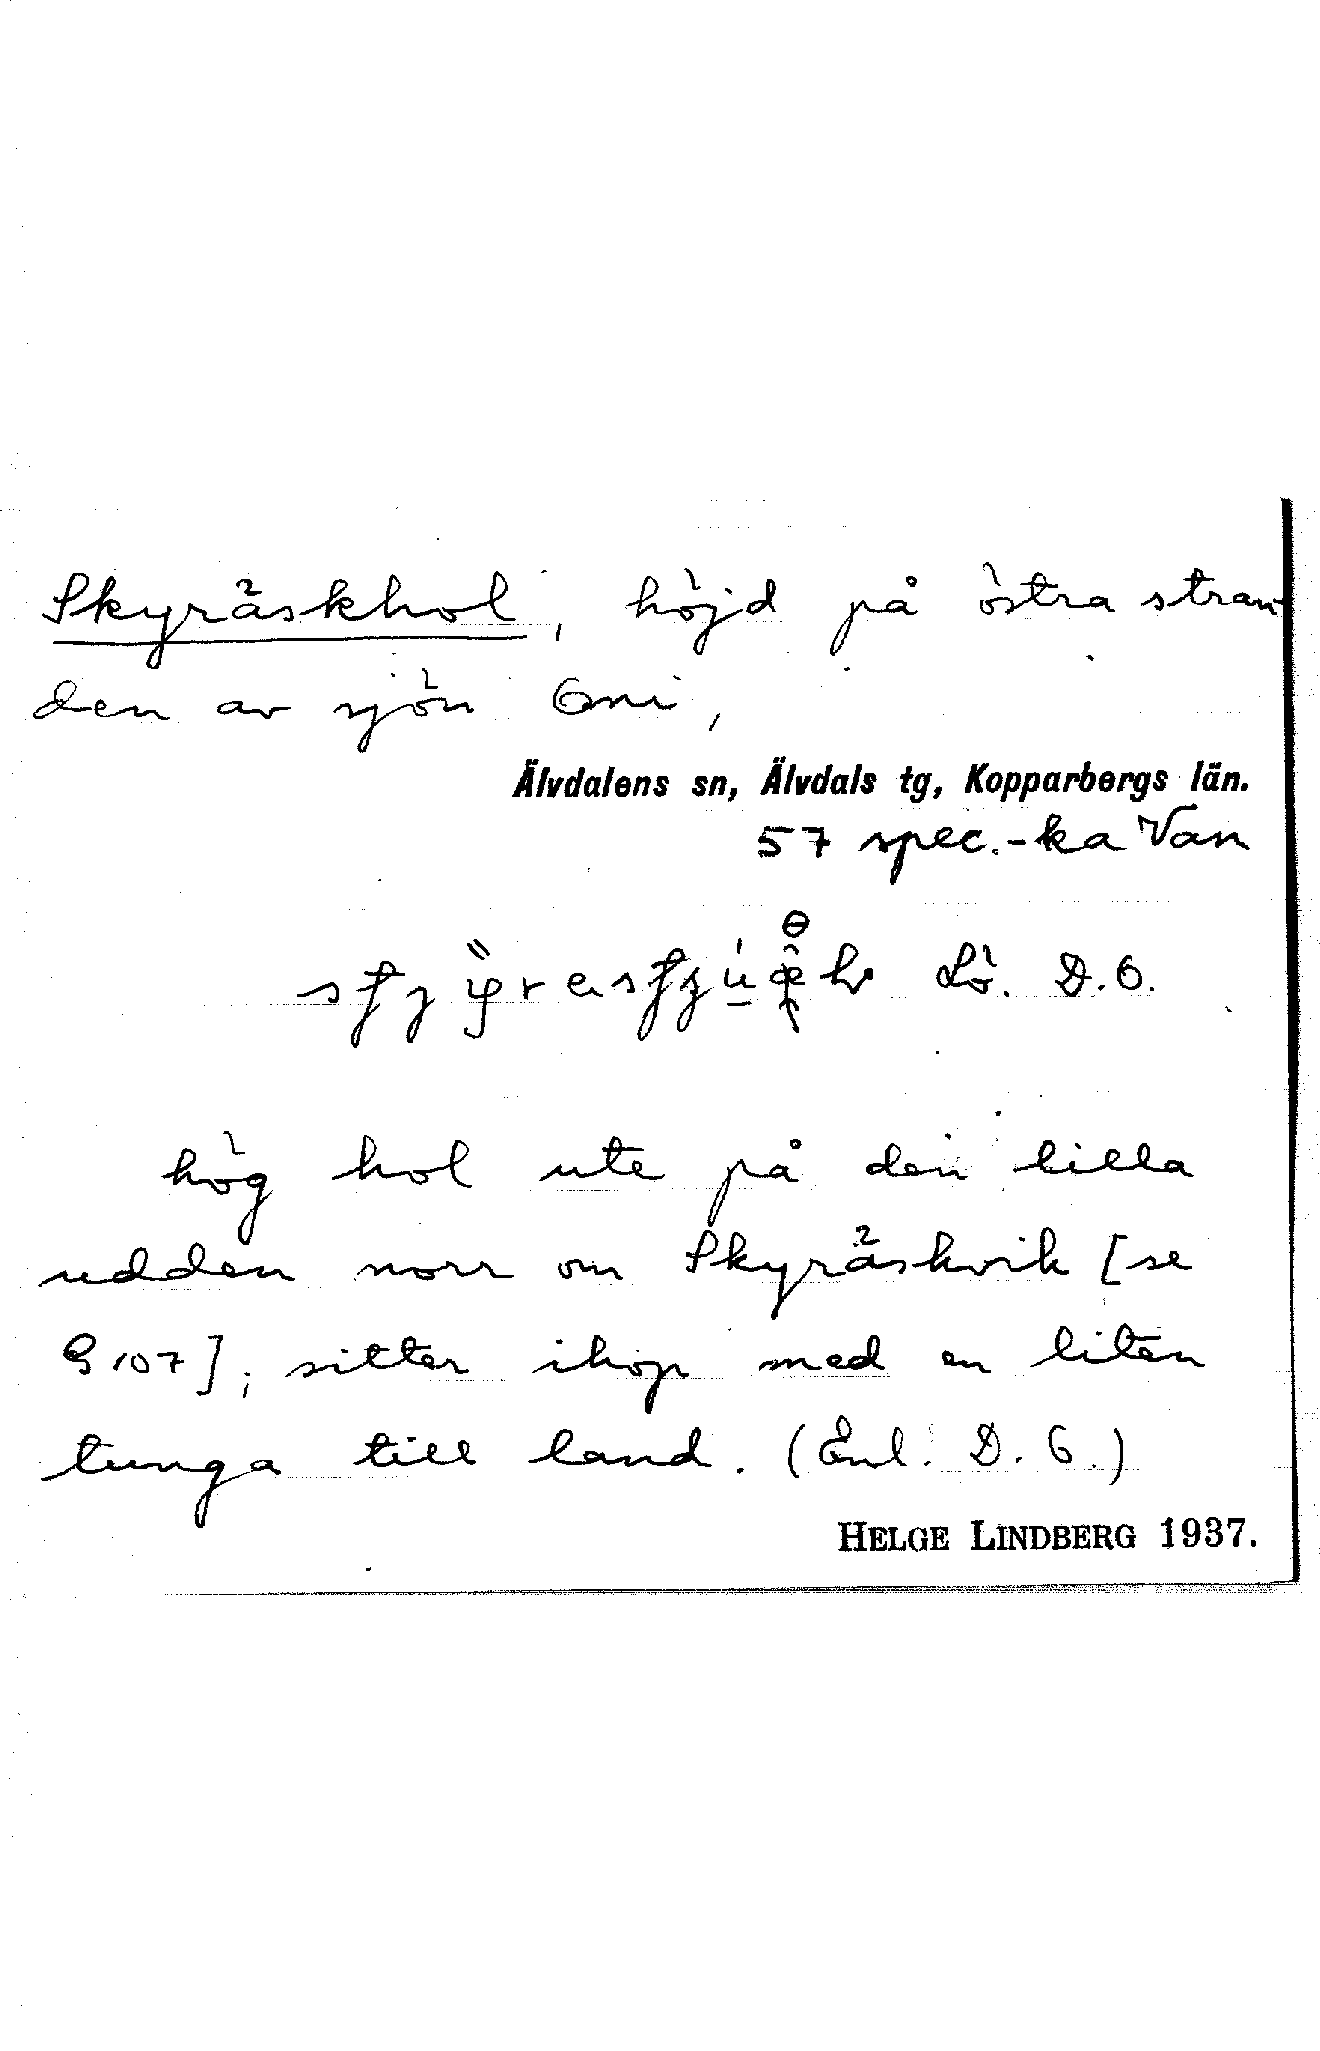 Skyräskhol, höjd på östra stran-
den av sjön Omi,
Älvdalens sn, Älvdals tg, Kopparbergs län.
57 spec.-ka Van
Lö. D.O.
hög hol ute på den lilla
udden norr om Skyräskvik [se
G 107]; sitter ihop med en liten
tunga till land. (Enl. D. O.)
HELGE LINDBERG 1937.